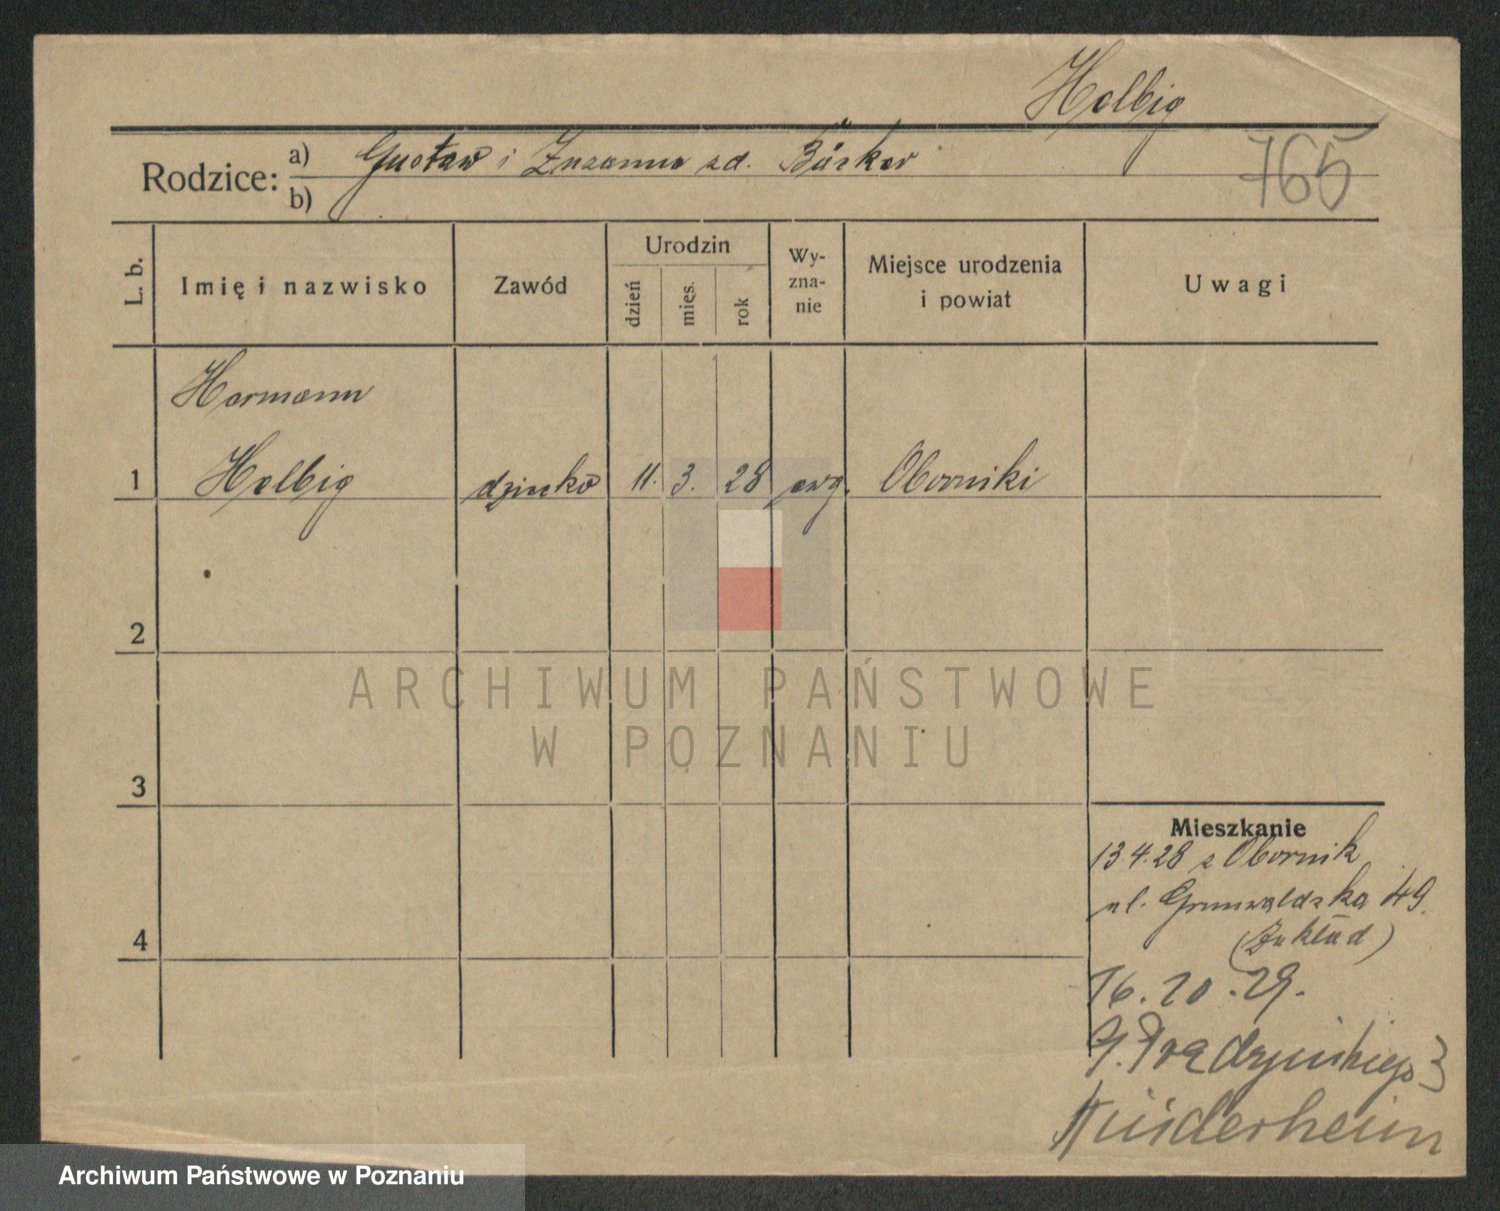 Helbig
765
Rodzice: a) Gustaw i Zuzanna zd. Bürker
b)
L. b. Imię i nazwisko Zawód Urodzin dzień mies. rok Wy-zna-nie Miejsce urodzenia i powiat Uwagi
Hermann
1 Helbig dziecko 11. 3. 28 ewg. Oborniki
2
ARCHIWUM PAŃSTWOWE
W POZNANIU
3
Mieszkanie
13 4.28 z Obornik
ul. Grunwaldzka 49.
(Zakład)
4
16.10.29.
G. Prądzyńskiego 3
Kinderheim
Archiwum Państwowe w Poznaniu